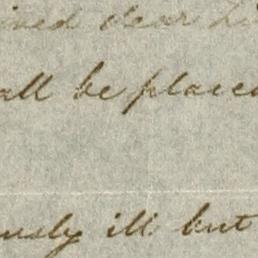 ived dear
all be placed
usly ill but